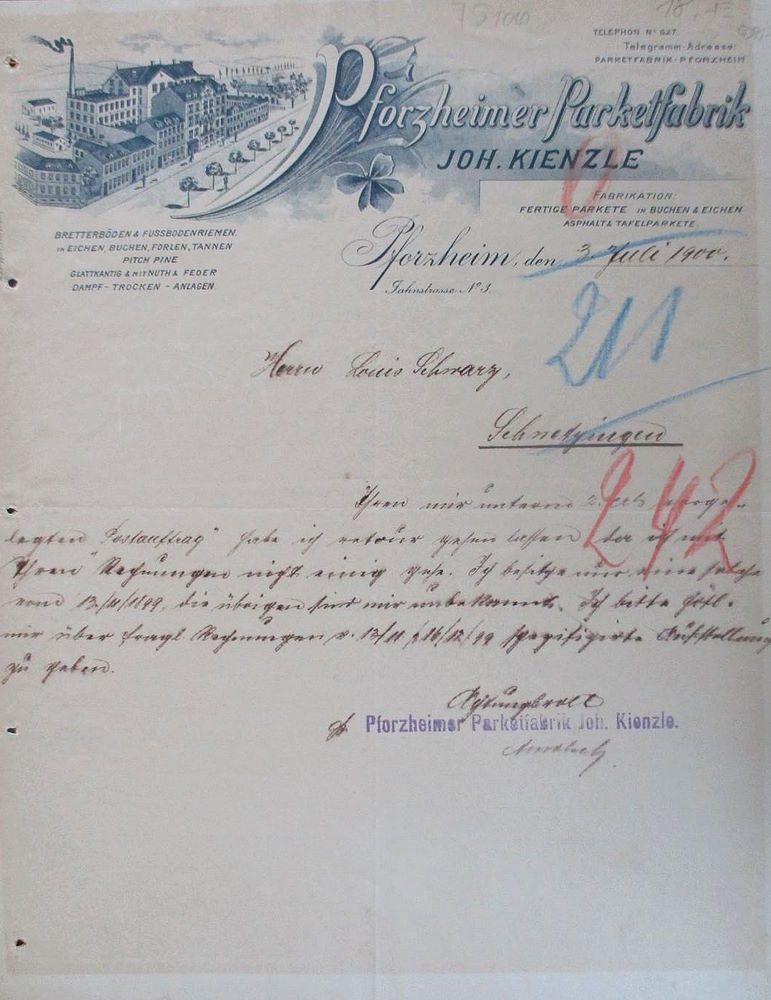 75100
TELEPHON Nº 627.
Telegramm-Adresse:
PARKETFABRIK-PFORZHEIM
Pforzheimer Parketfabrik
JOH. KIENZLE
FABRIKATION:
FERTIGE PARKETE IN BUCHEN & EICHEN
ASPHALT & TAFELPARKETE.
BRETTERBÖDEN & FUSSBODENRIEMEN.
IN EICHEN, BUCHEN, FORLEN, TANNEN
PITCH PINE
GLATTKANTIG & MIT NUTH & FEDER
DAMPF - TROCKEN - ANLAGEN.
Pforzheim, den 3. Juli 1900.
Jahnstrasse Nº 3.
211
Herrn Louis Schwarz,
Schwetzingen
242
Ihren mir unterm 2. vorge-
legten "Postauftrag" habe ich retour gehen lassen da ich mit
Ihren Rechnungen nicht einig gehe. Ich besitze nur eine solche
vom 13./11/1899, die übrigen sind mir unbekannt. Ich bitte höfl.
mir über fragl. Rechnungen v. 13/11 & 16/12/99 spezifizirte Aufstellung
zu geben.
Achtungsvoll
Pforzheimer Parketfabrik Joh. Kienzle.